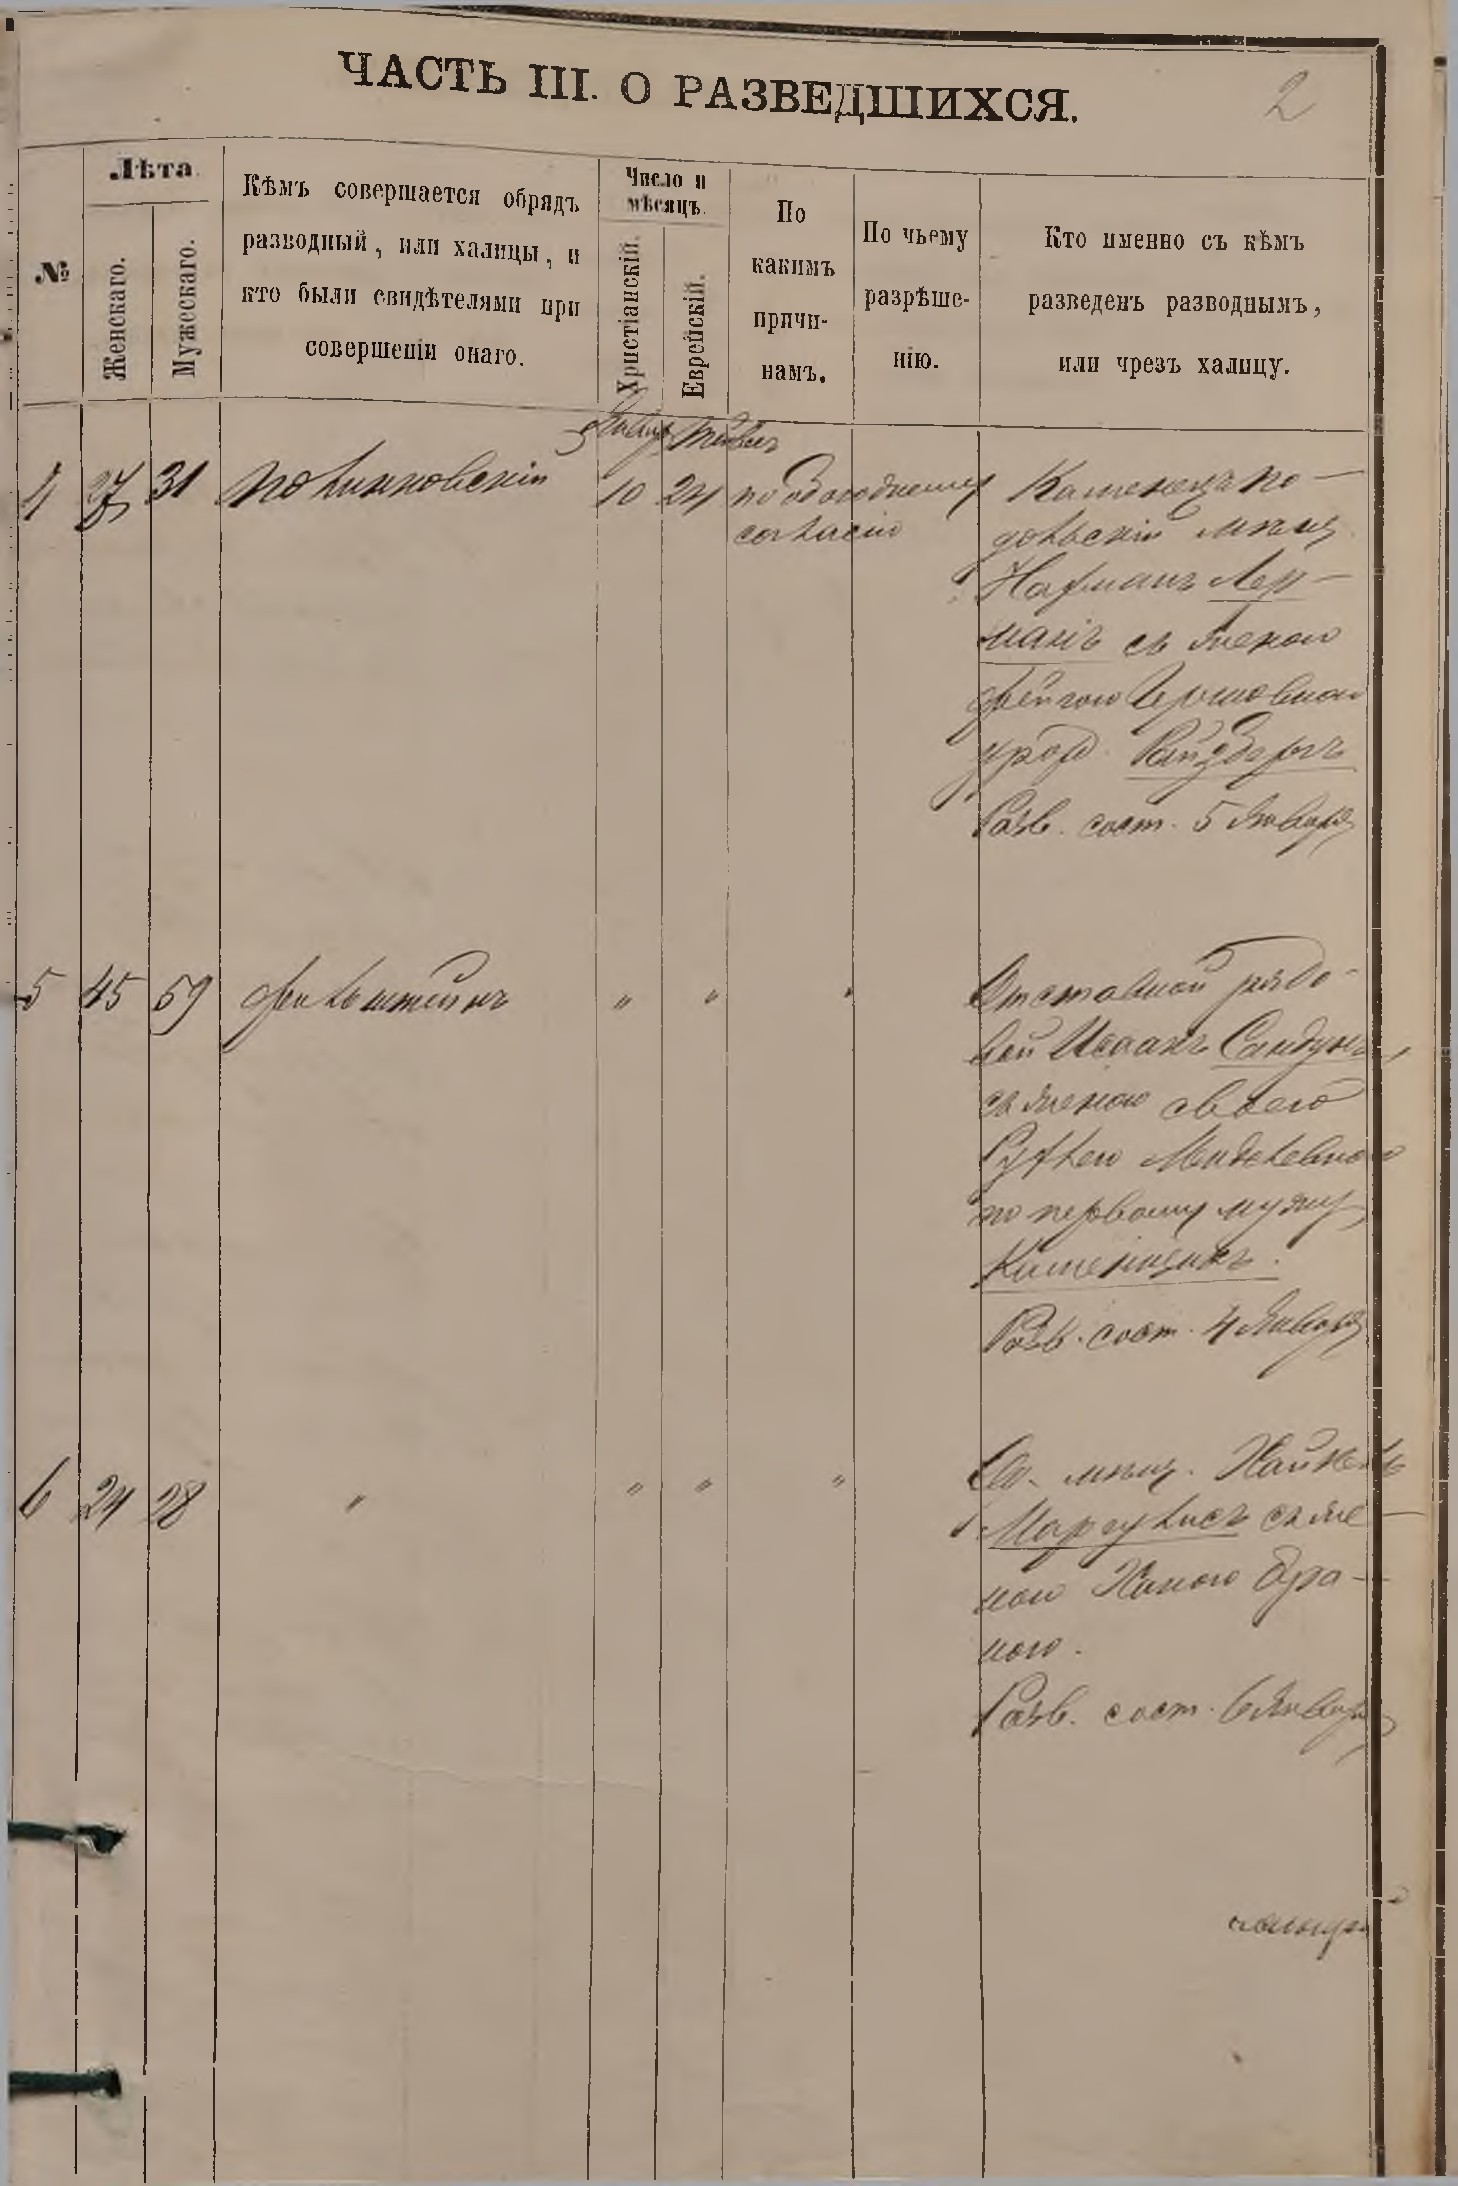 ЧАСТЬ III. О РАЗВЕДШИХСЯ.
2
№
Лѣта.
Женскаго.
Мужескаго.
Кѣмъ совершается обрядъ
разводный, или халицы, и
кто были свидѣтелями при
совершеніи онаго.
Число и
мѣсяцъ.
Христіанскій.
Еврейскій.
По
какимъ
причи-
намъ.
По чьему
разрѣше-
нію.
Кто именно съ кѣмъ
разведенъ разводнымъ,
или чрезъ халицу.
4 27 31 Полинковскій 10 24 по обоюдному
согласію
Каменецъ по-
дольскій мѣщ.
Нахманъ Лер-
манъ съ женою
Фейгою Гершовною
урод.
Разв. сост. 5 Января
5 45 59 Финкельштейнъ " " "
Отставной рядо-
вой Исаакъ Сандукъ,
съ женою своею
Рухлею
по первому мужу
Каменщикъ.
Разв. сост. 4 Января
6 24 28 " " " "
Од. мѣщ.
Маргулисъ съ же-
ною Ханою Бра-
ною.
Разв. сост. 6 Января